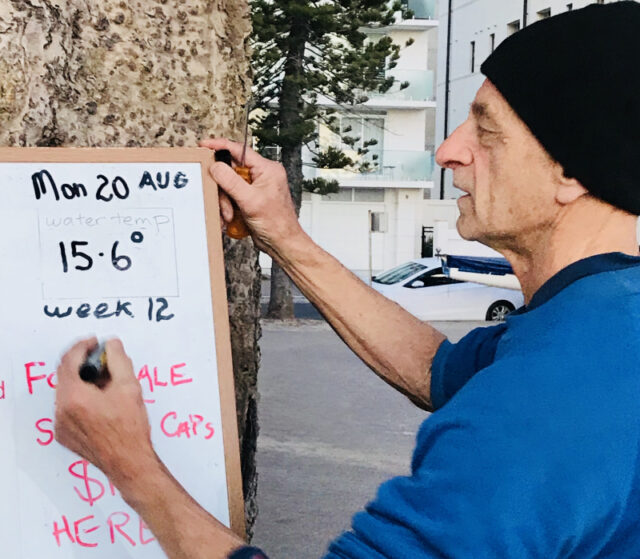 Mon 20 AUG
water temp
15.6°
week 12
ALE
CAPS
$
HERE